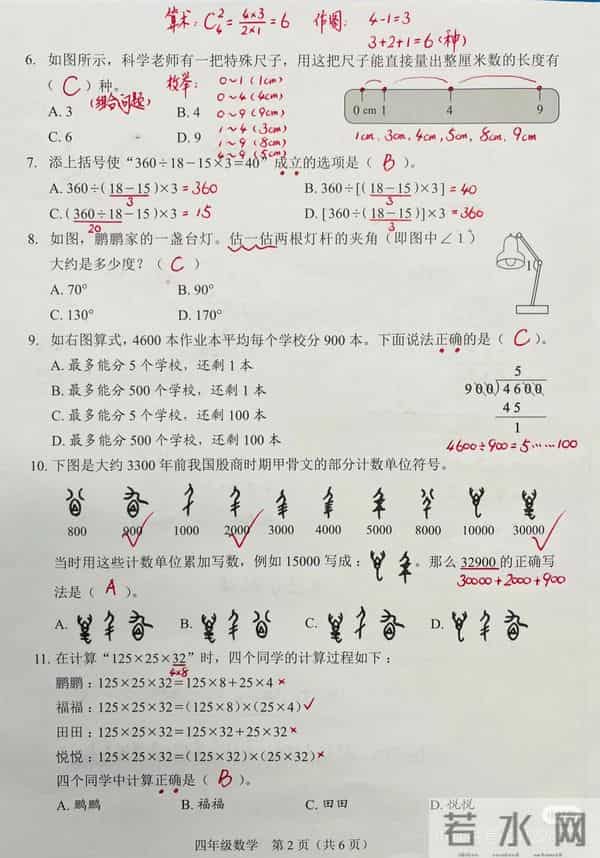 算术: C₄²=4×3/2×1=6 作图: 4-1=3
3+2+1=6(种)
6. 如图所示，科学老师有一把特殊尺子，用这把尺子能直接量出整厘米数的长度有
（ C ）种。 枚举: 0~1(1cm)
(组合问题) 0~4(4cm)
A. 3 B. 4 0~9(9cm)
0 cm 1 4 9
C. 6 D. 9 1~4(3cm)
1~9(8cm)
4~9(5cm)
1cm, 3cm, 4cm, 5cm, 8cm, 9cm
7. 添上括号使“360÷18-15×3=40”成立的选项是（ B ）。
A. 360÷(18-15)×3 =360 B. 360÷[(18-15)×3] =40
3 3
C. (360÷18-15)×3 =15 D. [360÷(18-15)]×3 =360
20 3
8. 如图，鹏鹏家的一盏台灯。估一估两根灯杆的夹角(即图中∠1)
大约是多少度？（ C ）
1
A. 70° B. 90°
C. 130° D. 170°
9. 如右图算式，4600 本作业本平均每个学校分 900 本。下面说法正确的是（ C ）。
A. 最多能分 5 个学校，还剩 1 本
B. 最多能分 500 个学校，还剩 1 本
C. 最多能分 5 个学校，还剩 100 本
D. 最多能分 500 个学校，还剩 100 本
5
900)4600
45
1
4600÷900=5……100
10. 下图是大约 3300 年前我国殷商时期甲骨文的部分计数单位符号。
800 900 1000 2000 3000 4000 5000 8000 10000 30000
当时用这些计数单位累加写数，例如 15000 写成： 。那么 32900 的正确写
30000+2000+900
法是（ A ）。
A. B. C. D.
11. 在计算“125×25×32”时，四个同学的计算过程如下：
4×8
鹏鹏：125×25×32=125×8+25×4 ×
福福：125×25×32=(125×8)×(25×4) ✓
田田：125×25×32=125×32+25×32 ×
悦悦：125×25×32=(125×32)×(25×32) ×
四个同学中计算正确是（ B ）。
A. 鹏鹏 B. 福福 C. 田田 D. 悦悦
四年级数学 第 2 页（共 6 页）
若水网